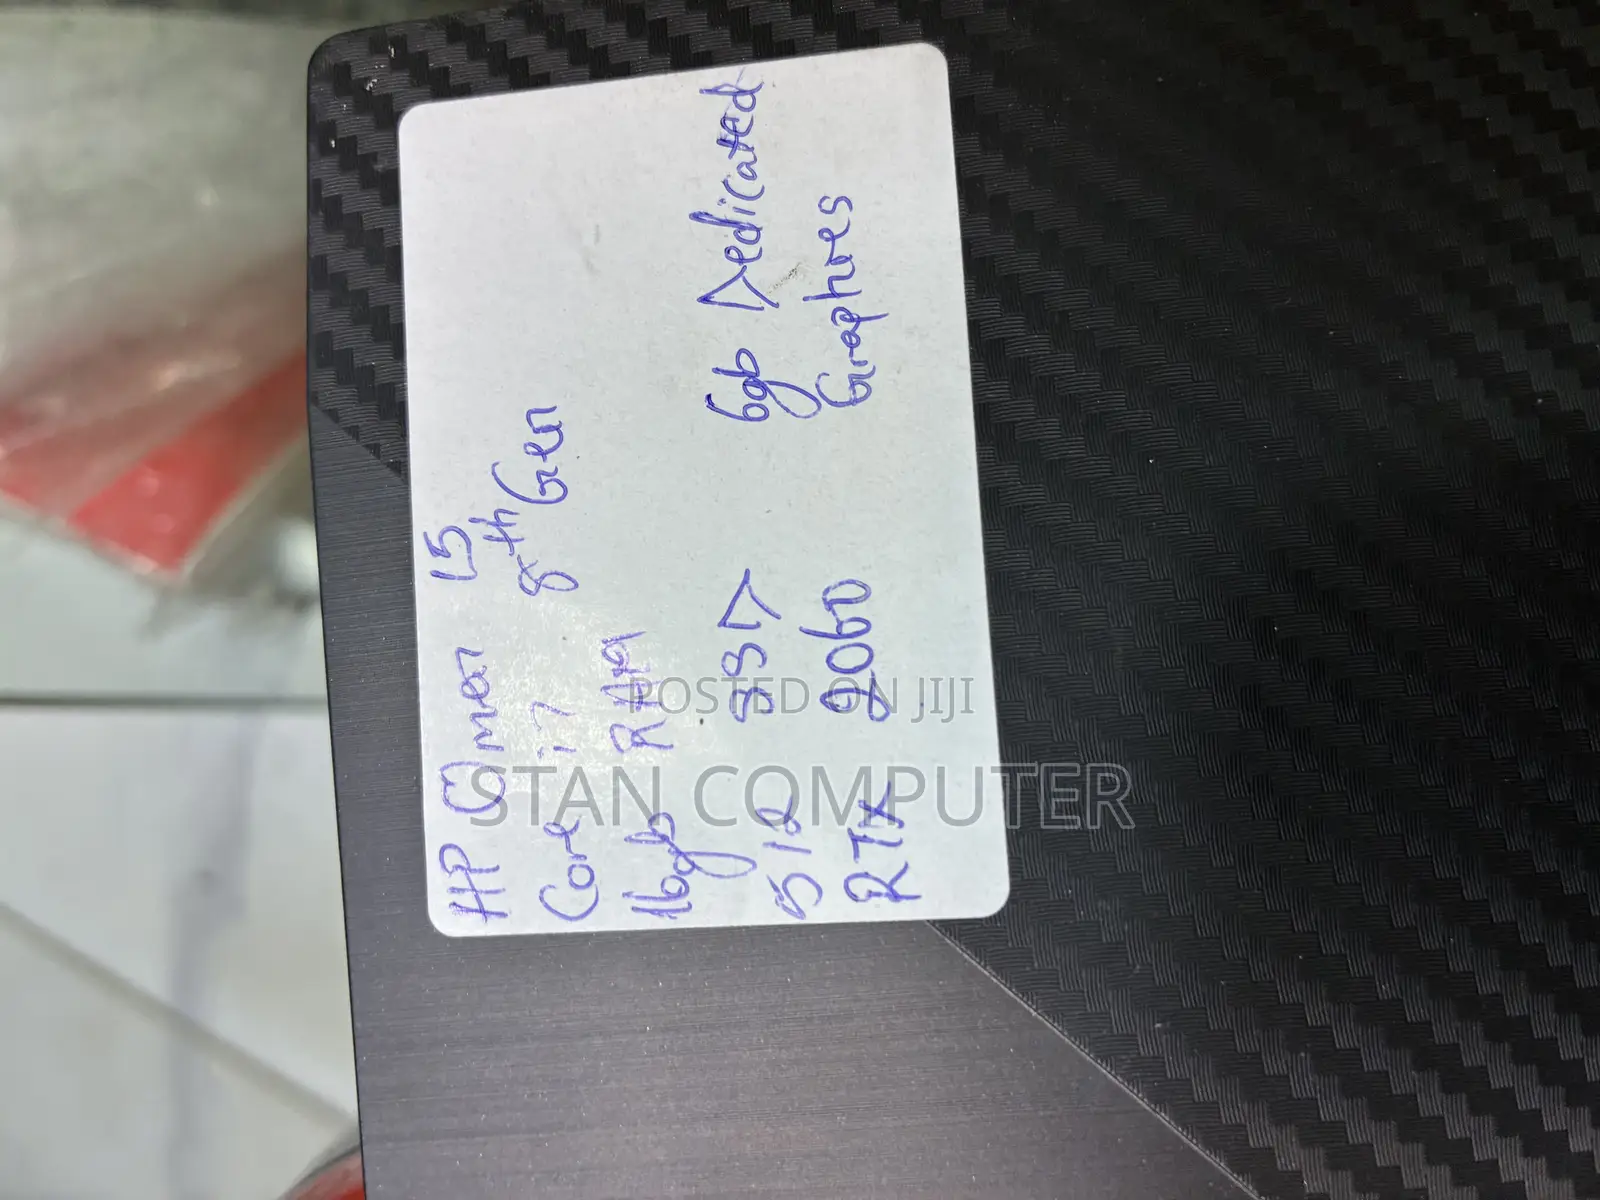 HP Omen 15
Core i7 8th Gen
16gb RAM
512 SSD 6gb Dedicated
RTX 2060 Graphics
POSTED ON JIJI
STAN COMPUTER